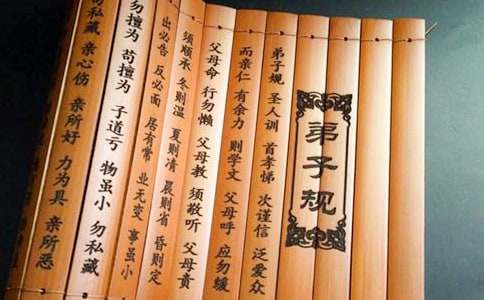 弟子规
弟子规 圣人训 首孝悌 次谨信 泛爱众
而亲仁 有余力 则学文 父母呼 应勿缓
父母命 行勿懒 父母教 须敬听 父母责
须顺承 冬则温 夏则清 晨则省 昏则定
出必告 反必面 居有常 业无变 事虽小
勿擅为 苟擅为 子道亏 物虽小 勿私藏
勿私藏 亲心伤 亲所好 力为具 亲所恶